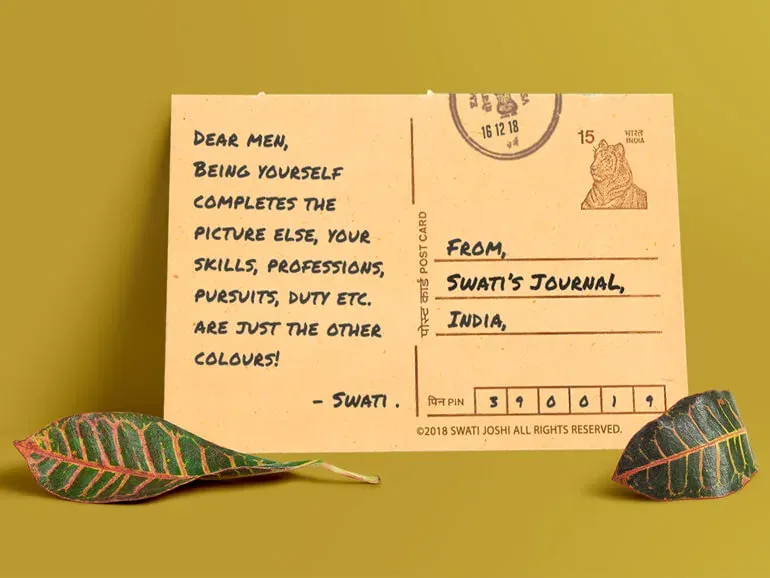 DEAR MEN,
BEING YOURSELF
COMPLETES THE
PICTURE ELSE, YOUR
SKILLS, PROFESSIONS,
PURSUITS, DUTY ETC.
ARE JUST THE OTHER
COLOURS!
- SWATI .
16 12 18
15 भारत
INDIA
पोस्ट कार्ड POST CARD
FROM,
SWATI'S JOURNAL,
INDIA,
पिन PIN 3 9 0 0 1 9
©2018 SWATI JOSHI ALL RIGHTS RESERVED.